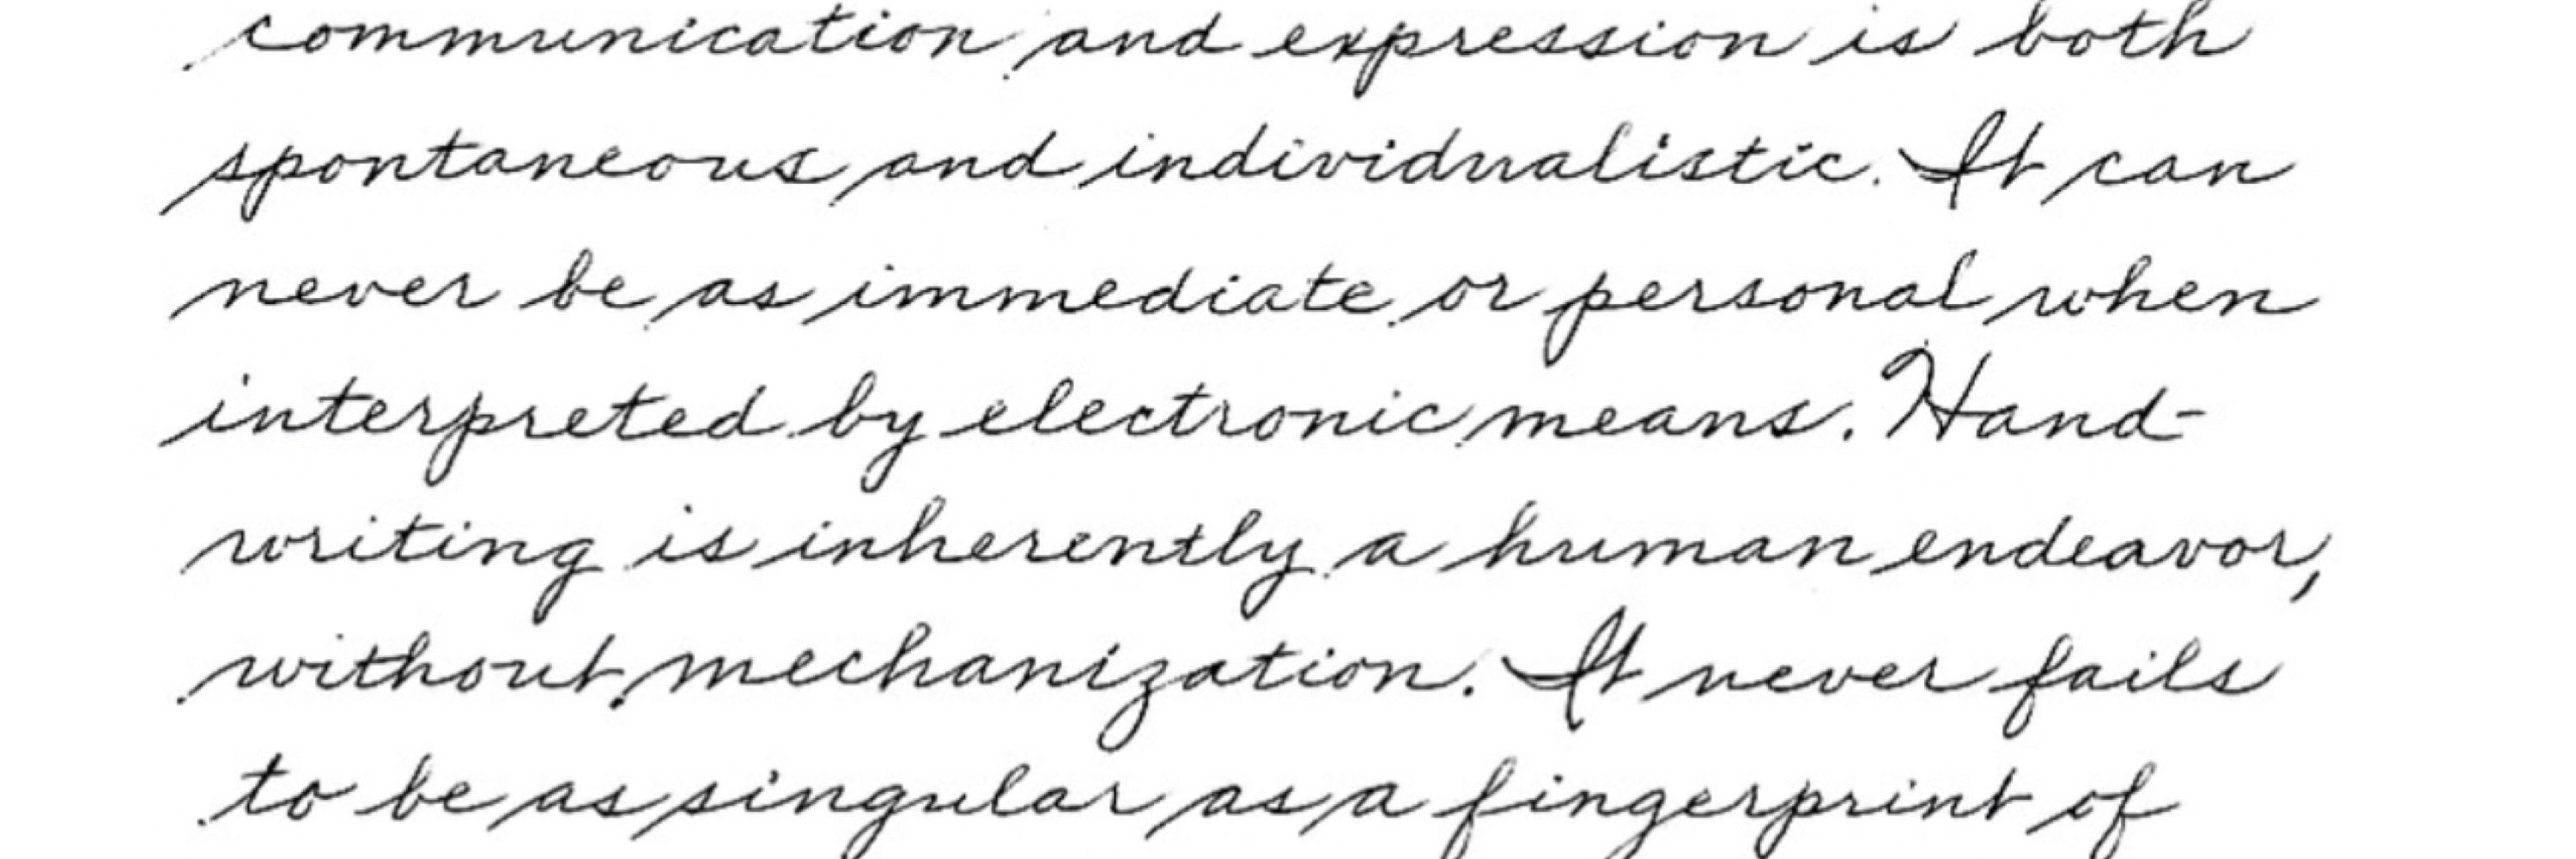 communication and expression is both
spontaneous and individualistic. It can
never be as immediate or personal when
interpreted by electronic means. Hand-
writing is inherently a human endeavor,
without mechanization. It never fails
to be as singular as a fingerprint of